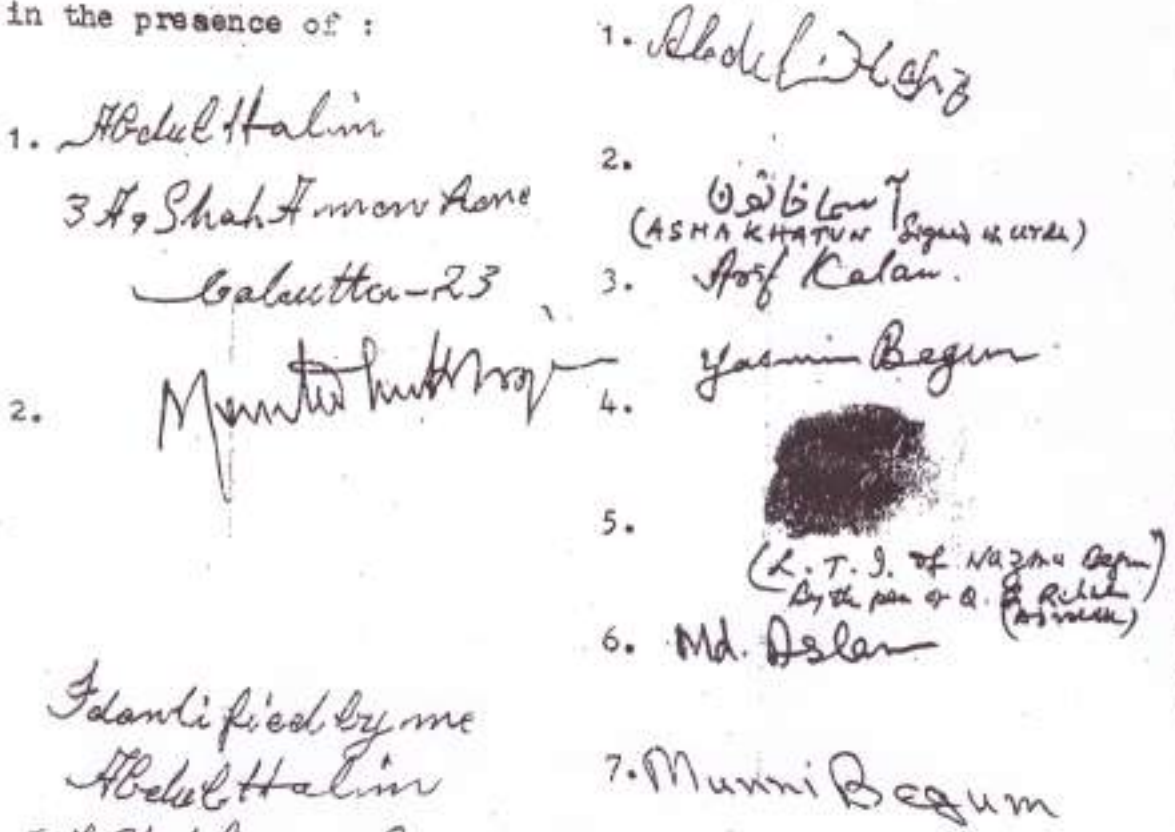 in the presence of :
1. Abdul Halim
3A, Shah Aman Lane
Calcutta-23
2.
Idantified by me
Abdul Halim
1. Abdul Hafiz
2. آسما خاتون
(ASMA KHATUN Signed in urdu)
3. Arif Kalam.
4. Yasmin Begum
5.
(L. T. I. of Nazma Begum
By the pen of Q.
6. Md. Aslam
7. Munni Begum